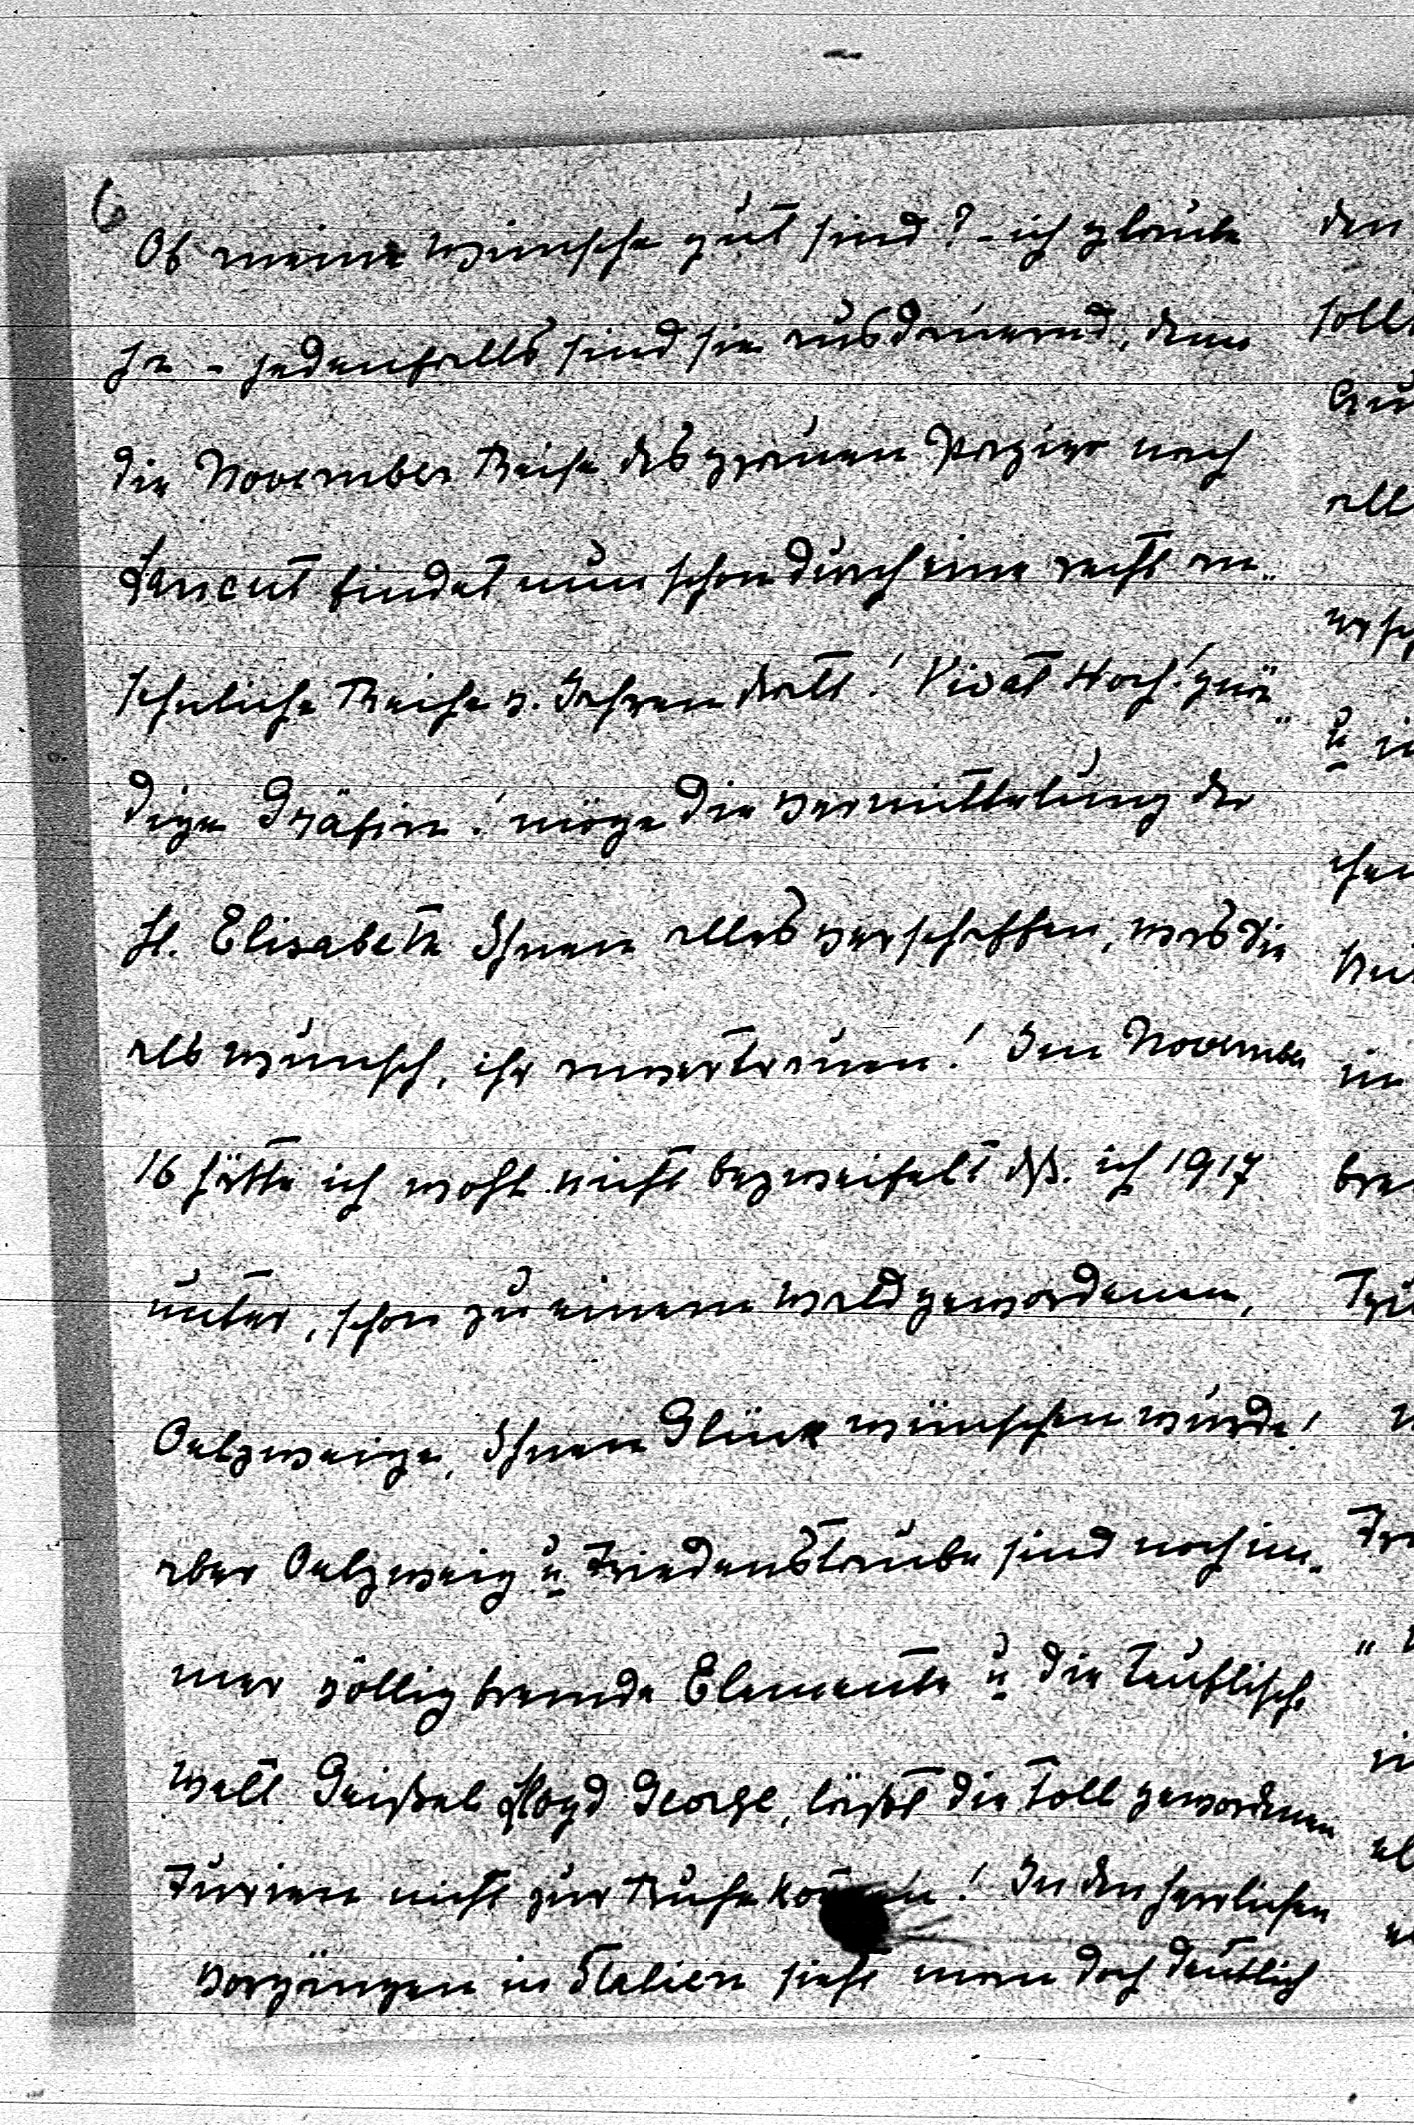 6
Ob meine Wünsche gut sind? - ich glaube
ja - jedenfalls sind sie ausdauernd, denn
die November Reise des grauen Papier nach
Lancut findet nun schon durch eine recht an-
sehnliche Reihe v. Jahren statt! Vivat Hoch! gnä-
dige Gräfin! möge die Vermittelung der
hl. Elisabeth Ihnen alles verschaffen, was Sie
als Wunsch, ihr anvertrauen! Im November
16 hätte ich wohl nicht bezweifelt dß. ich 1917
unter, schon zu einem Wald gewordenen,
Oelzweige, Ihnen Glück wünschen würde!
aber Oelzweig u Friedenstaube sind noch im-
mer völlig fremde Elemente u die teuflische
Welt Geißel Lloyd George, läßt die toll gewordenen
Furien nicht zur Ruhe kommen! In den herrlichen
Vorgängen in Italien sieht man doch deutlich
den
soll
all
u
im